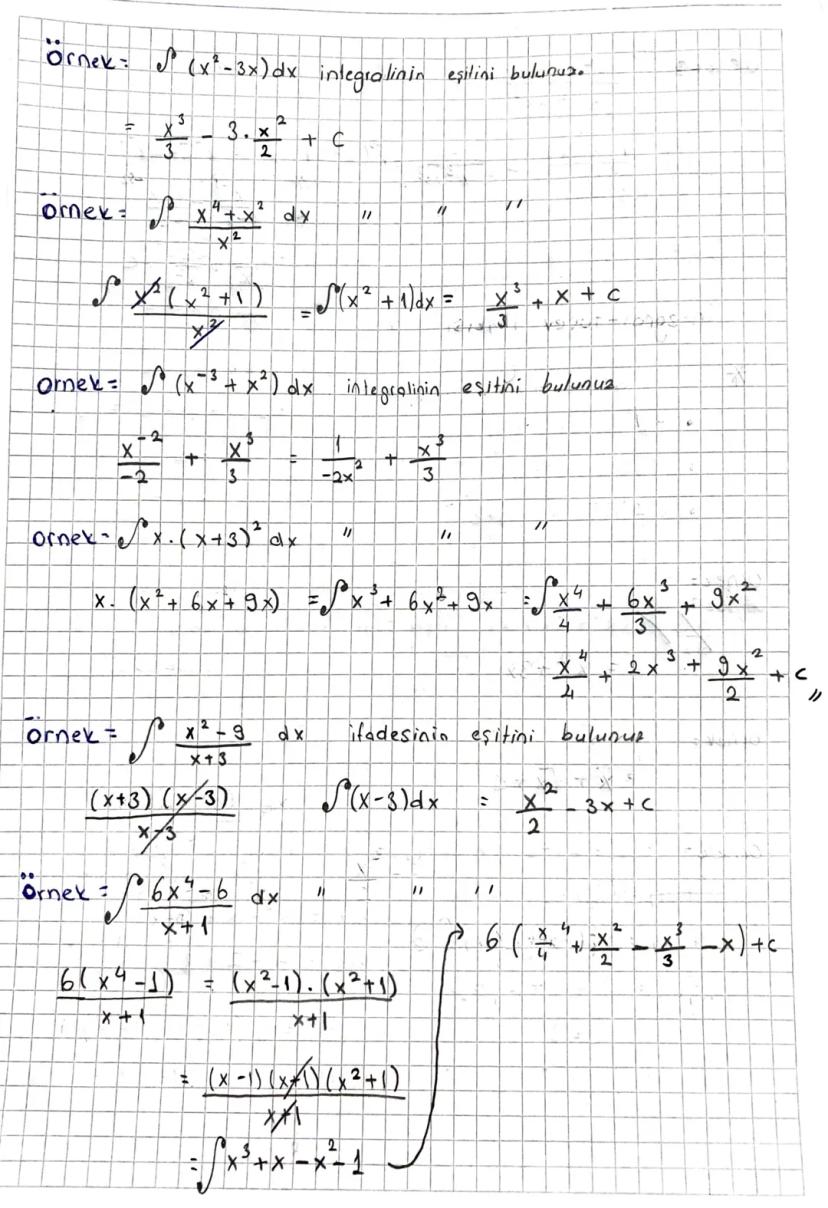 Örnek = ∫ (x² - 3x) dx integralinin eşilini bulunuz.
= x³/3 - 3 · x²/2 + c
Örnek = ∫ (x⁴ + x²)/x² dx " " "
∫ x²(x² + 1)/x² = ∫(x² + 1)dx = x³/3 + x + c
Ornek = ∫ (x⁻³ + x²) dx integralinin eşitini bulunuz
x⁻²/-2 + x³/3 = 1/-2x² + x³/3
Ornek = ∫ x · (x+3)² dx " " "
x · (x² + 6x + 9x) = ∫ x³ + 6x² + 9x = ∫ x⁴/4 + 6x³/3 + 9x²
x⁴/4 + 2x³ + 9x²/2 + c,,
Örnek = ∫ (x² - 9)/(x+3) dx ifadesinin eşitini bulunuz
(x+3) (x-3)/(x-3) ∫(x-3)dx = x²/2 - 3x + c
Örnek = ∫ (6x⁴ - 6)/(x+1) dx " " "
6 (x⁴/4 + x²/2 - x³/3 - x) + c
6(x⁴ - 1)/(x+1) = (x²-1) · (x²+1)/(x+1)
= (x-1)(x+1)(x²+1)/(x+1)
= ∫ x³ + x - x² - 1